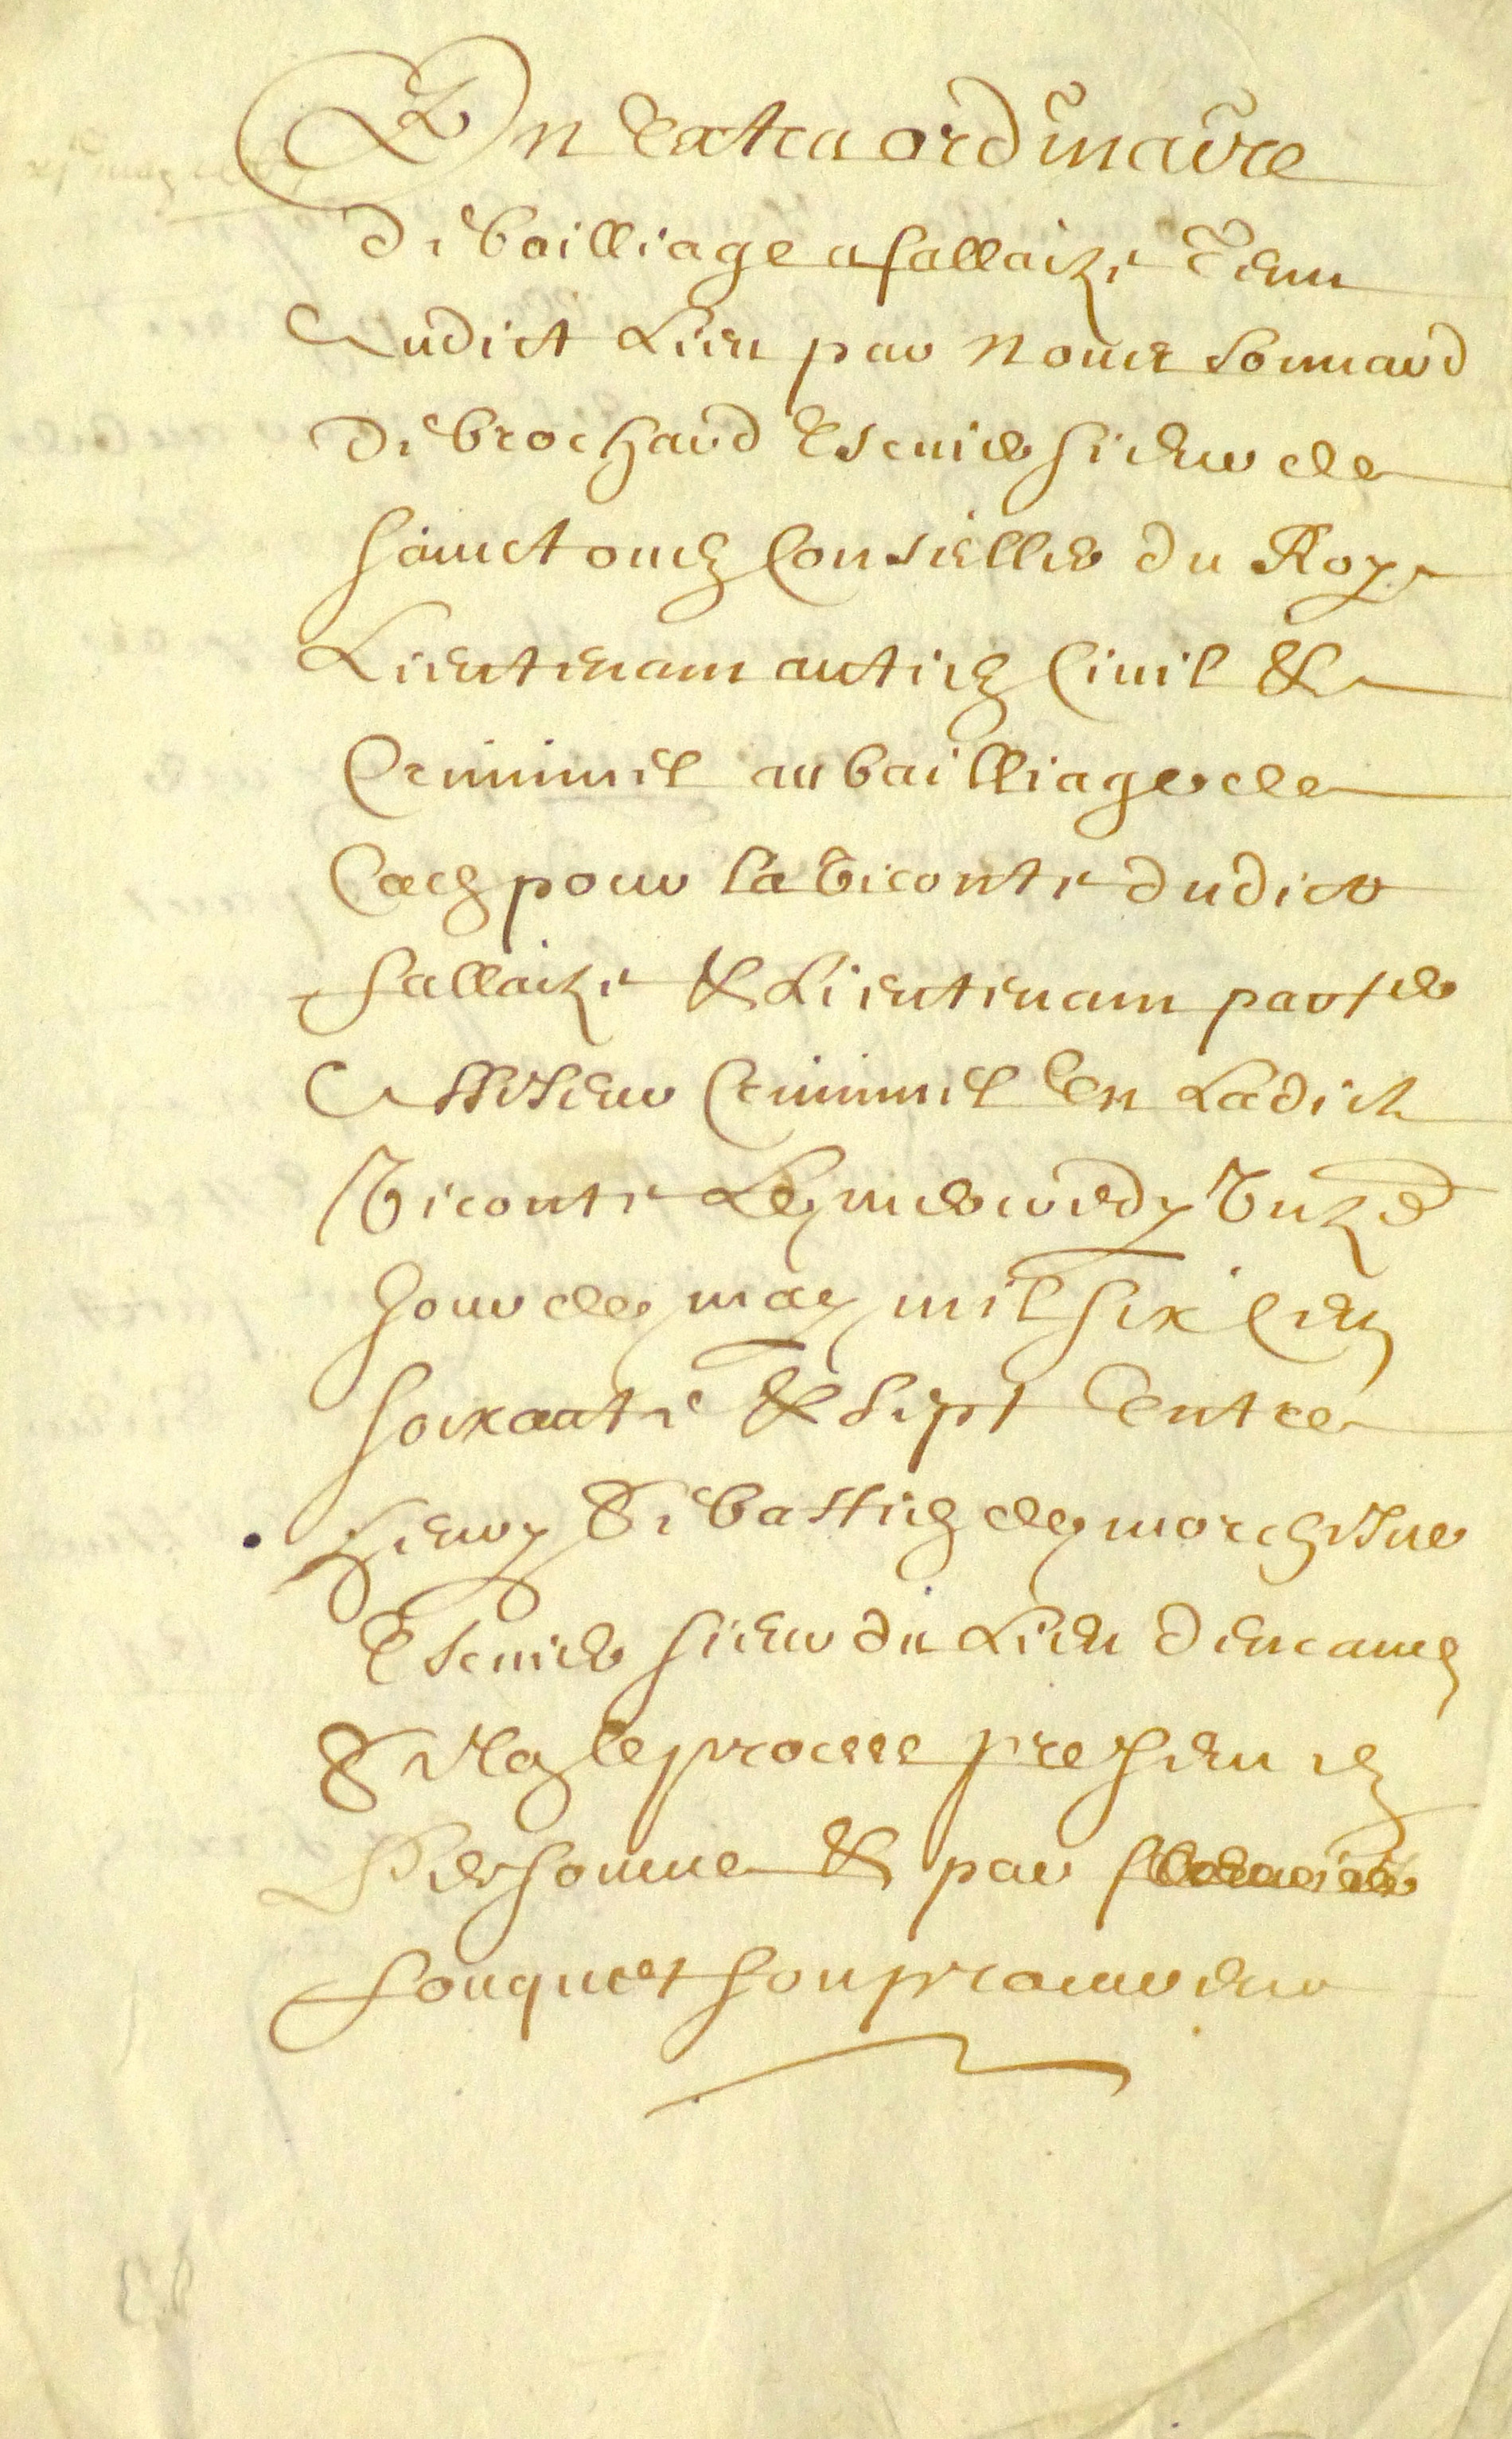 En Lextraordinaire
de bailliage a fallaize tenu
Audict Lieu par nous
de brochard Escuier sieur de
sainct ouen Conseiller du Roy
Lieutenant antien Civil &
Criminel au bailliage de
Caen pour la viconte dudict
fallaize & Lieutenant par
Criminel En Ladicte
viconte Le mercredy unze
Jour de may mil six cens
soixante & sept Entre
Henry Sebastien de morchesne
Escuier sieur du Lieu
present en
Personne & par
fouquet son procureur